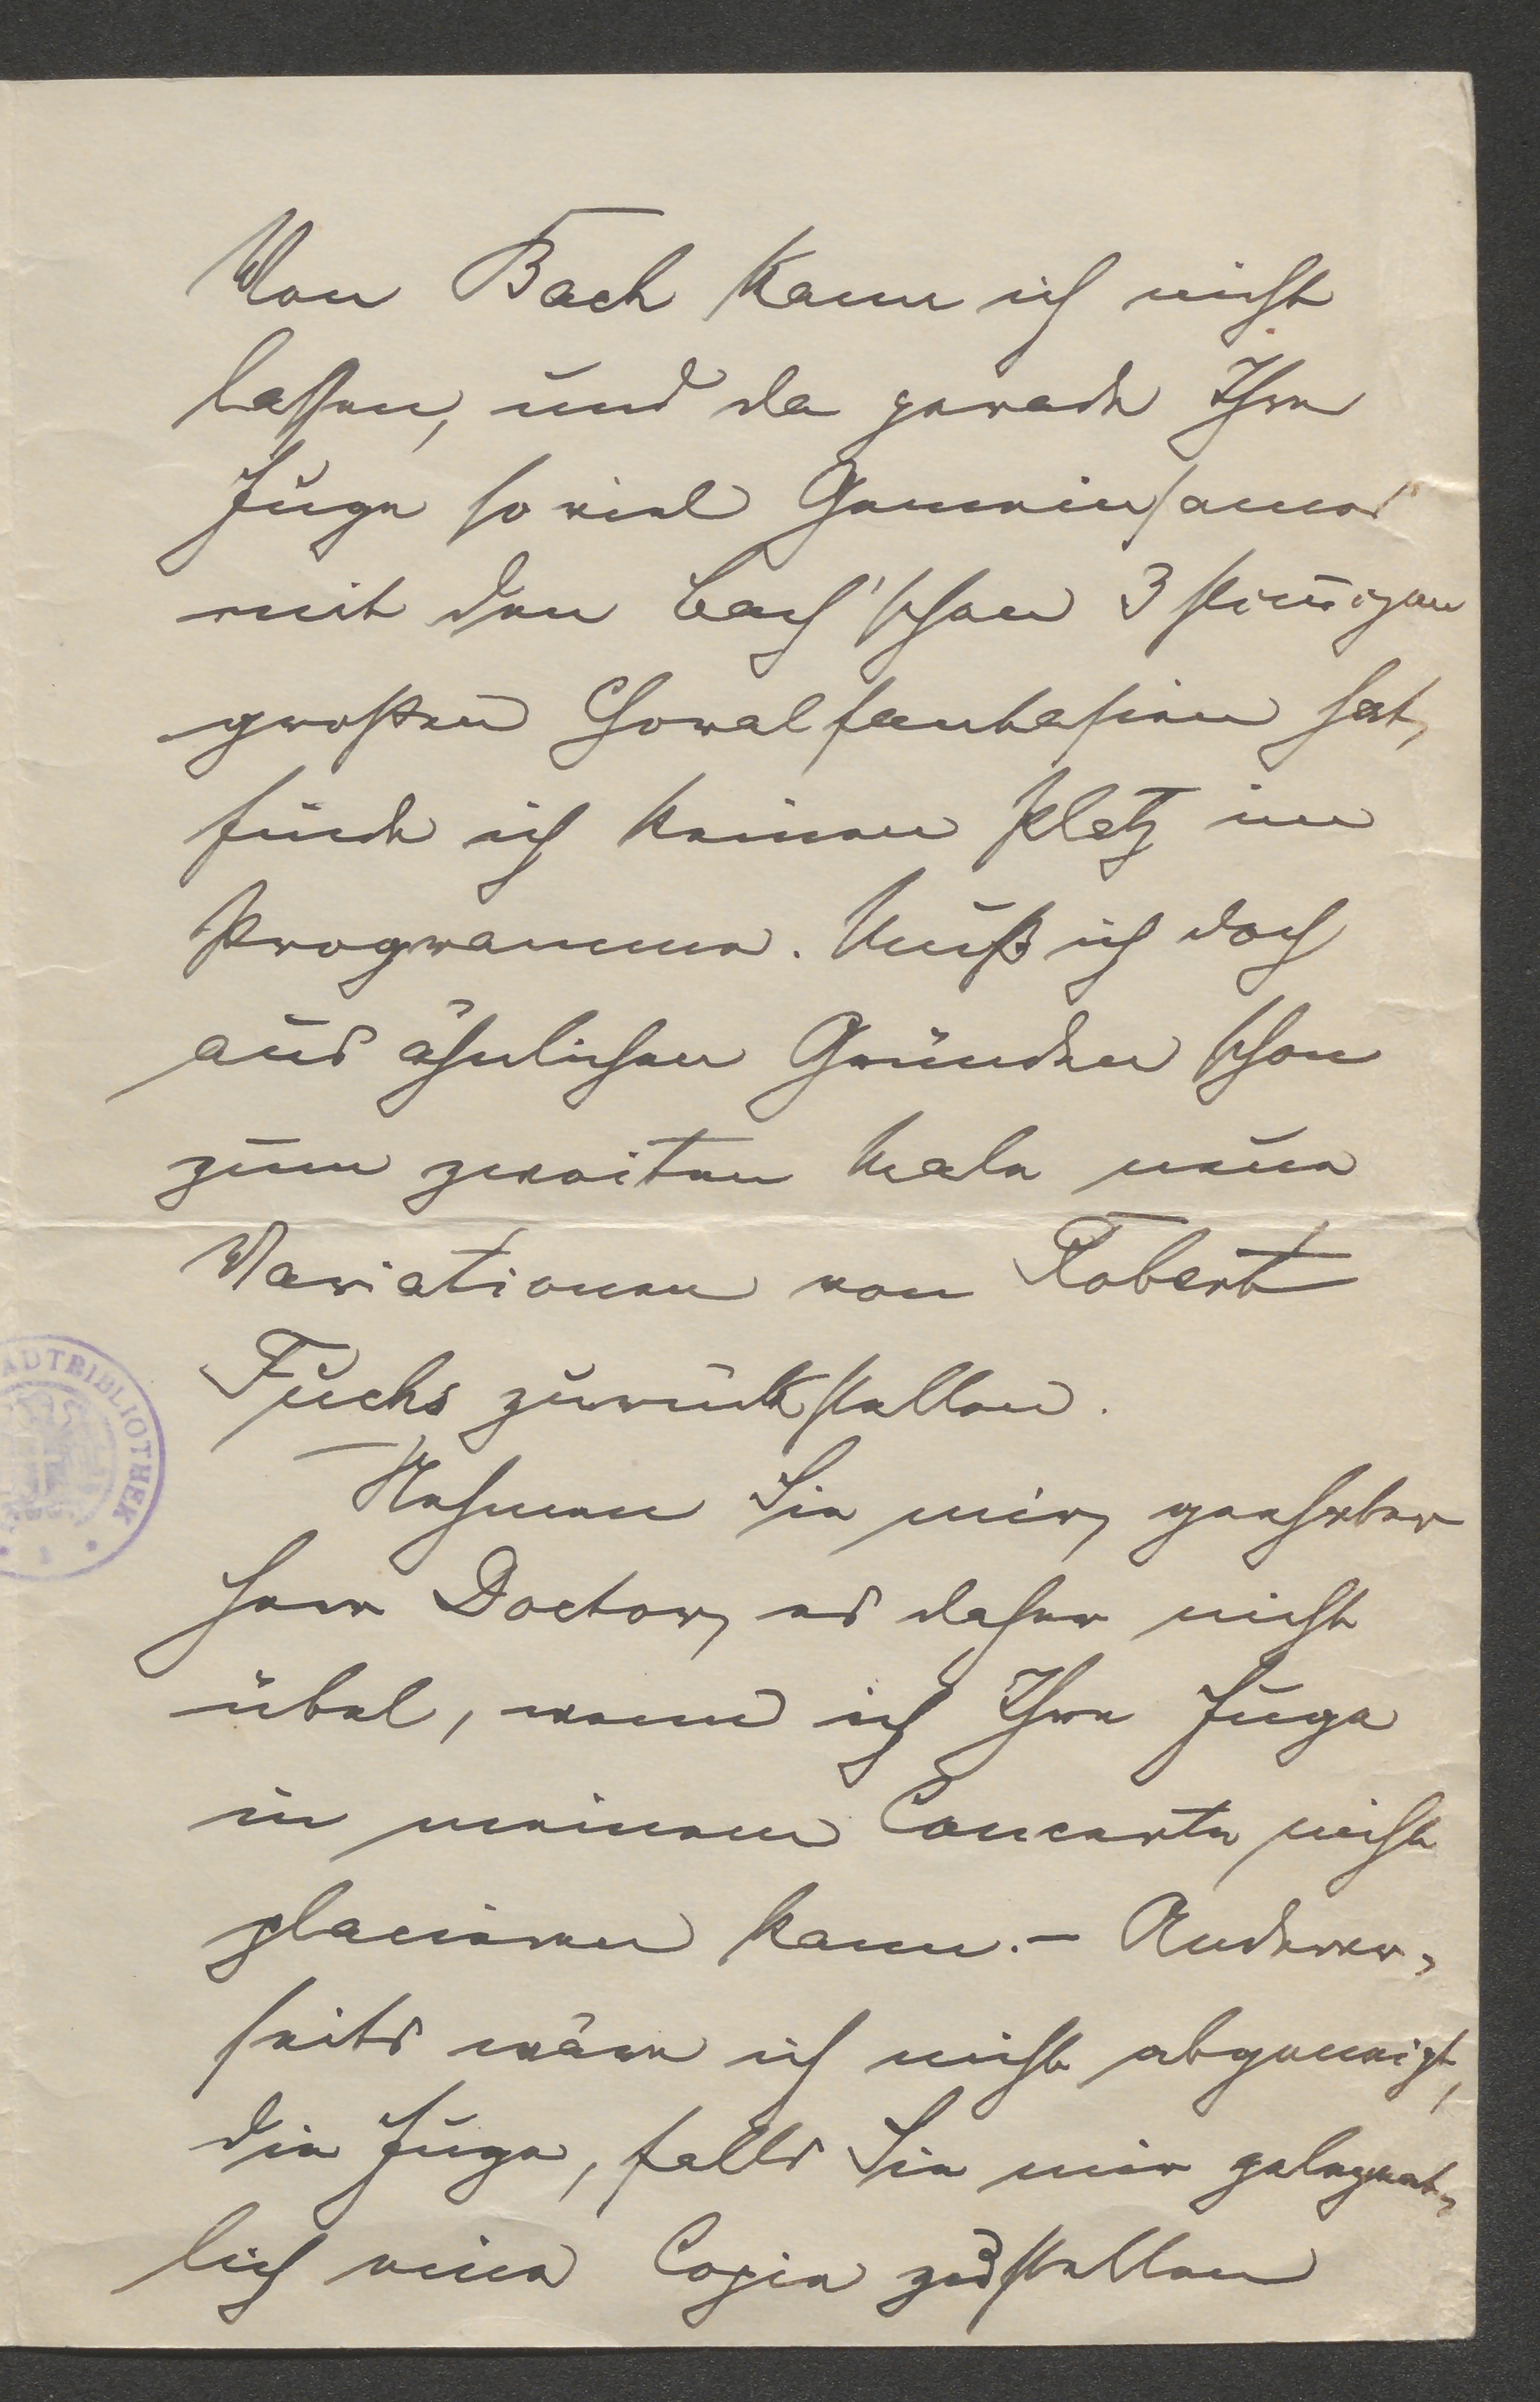 Von Bach kann ich nicht
lassen, und da gerade Ihre
Fuge so viel Gemeinsames
mit den Bach'schen 3 stim̄igen
großen Choralfantasien hat,
finde ich keinen Platz im
Programme. Muß ich doch
aus ähnlichen Gründen schon
zum zweiten Male neue
Variationen von Robert
Fuchs zurückstellen.
Nehmen Sie mir, geehrter
Herr Doctor, es daher nicht
übel, wenn ich Ihre Fuge
in meinem Concerte nicht
placieren kann. – Anderer-
seits wäre ich nicht abgeneigt,
die Fuge, falls Sie mir gelegent-
lich eine Copie zustellen
ADTBIBLIOTHEK